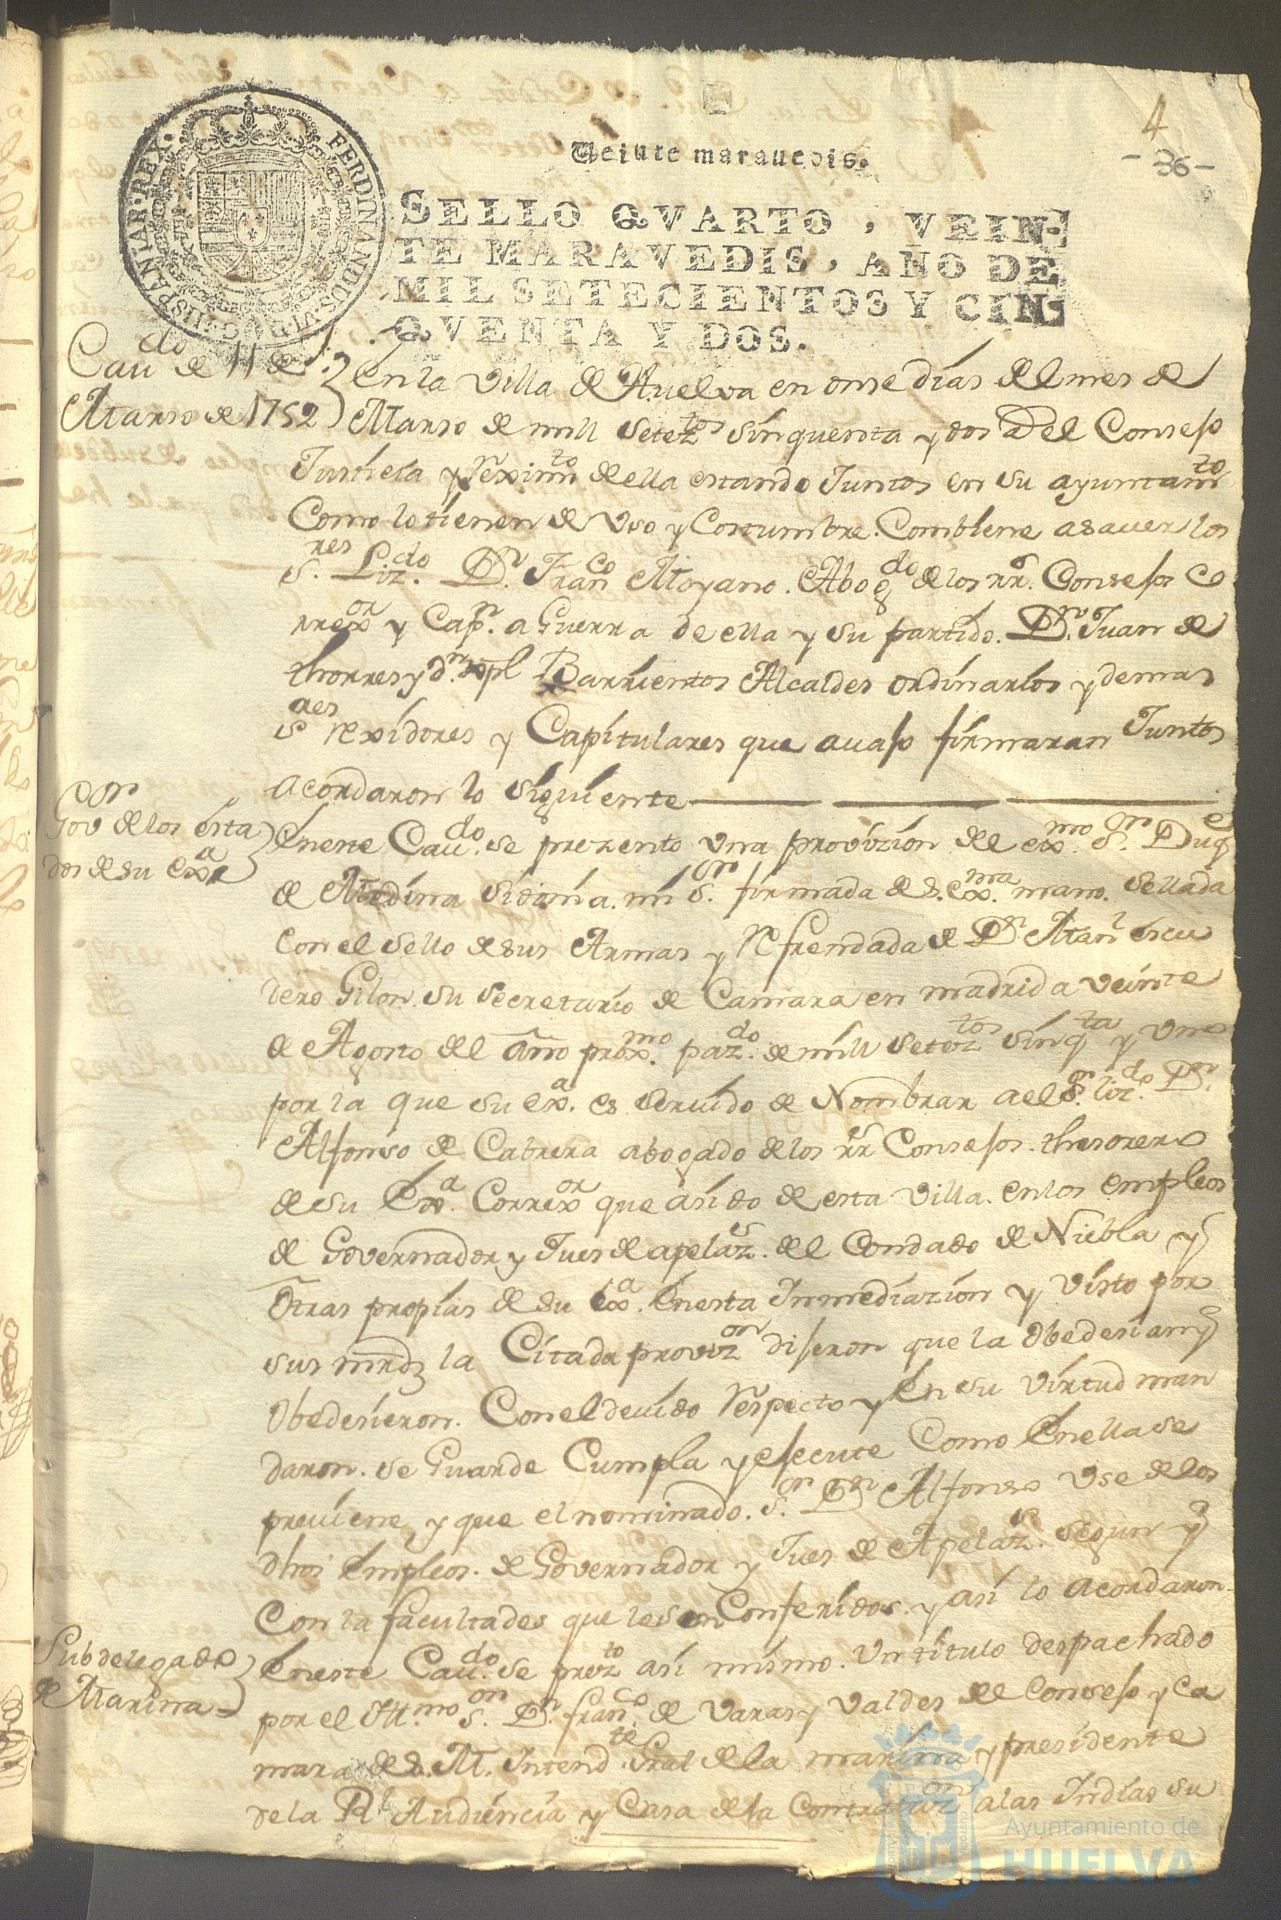 4
-36-
Veinte maravedis.
SELLO QVARTO, VEIN-
TE MARAVEDIS, AÑO DE
MIL SETECIENTOS Y CIN-
QVENTA Y DOS.
FERDINANDUS VI D. G. HISPANIAR. REX.
Caudo de 11 de
Marzo de 1752
En la Villa de Huelva en onse días del mes de
Marzo de mill seteztos sinquenta y dos a el Consejo
Justicia y reximto de ella estando Juntos en su ayuntamto
Como lo tienen de Uso y Costumbre. Combiene asauer los
Sres Lizdo Dn Franco Moyano. Abogdo de los rrs Consejos Co
rrexor y Capn a Guerra de ella y su partido. Dn Juan de
thorres y dn Xpl Barrientos Alcaldes ordinarios y demas
Sres rexidores y Capitulares que auajo firmaran Juntos
acordaron lo siguiente
Gov de los esta
dos de su exa
En este Caudo se prezento una provizion del exmo Sor Duqe
de Medina Sidonia. mi Sor firmada de S. Exma mano. Sellada
con el sello de sus Armas y refrendada de Dn Manl escu
dero Gilon. su secretario de Camara en madrid a veinte
de Agosto del año proxmo pazdo de mill seteztos sinqta y uno
por la que su exa es seruido de Nombrar a el Sor lizdo Dn
Alfonso de Cabrera abogado de los rr Consejos. thesorero
de su Exa Correxor que a sido de esta Villa. en los empleos
de Governador y Jues de apelazes del Condado de Niebla y
Otras propias de su Exa En esta Inmediazion y visto por
sus mrdz la Citada provizon dijeron que la Obedesian y
Obedesieron. Con el deuido respecto y En su virtud man
daron. se Guarde Cumpla y ejecute Como En ella se
preuiene y que el nominado. Sor Dn Alfonso Use de los
dhos Empleos. de Governador y Jues de Apelazs segun y
Con la facultades que le son Conferidos. y asi lo acordaron.
Subdelegado
de Marina
En este Caudo se preztо asi mismo. Un titulo despachado
por el Illmo Sor Dn franco de Varas y Valdes del Consejo y Ca
mara de S. M. Intendte Gral de la marina y presidente
de la Rl Audiencia y Casa de la Contratazon a las Indias su
Ayuntamiento de
HUELVA